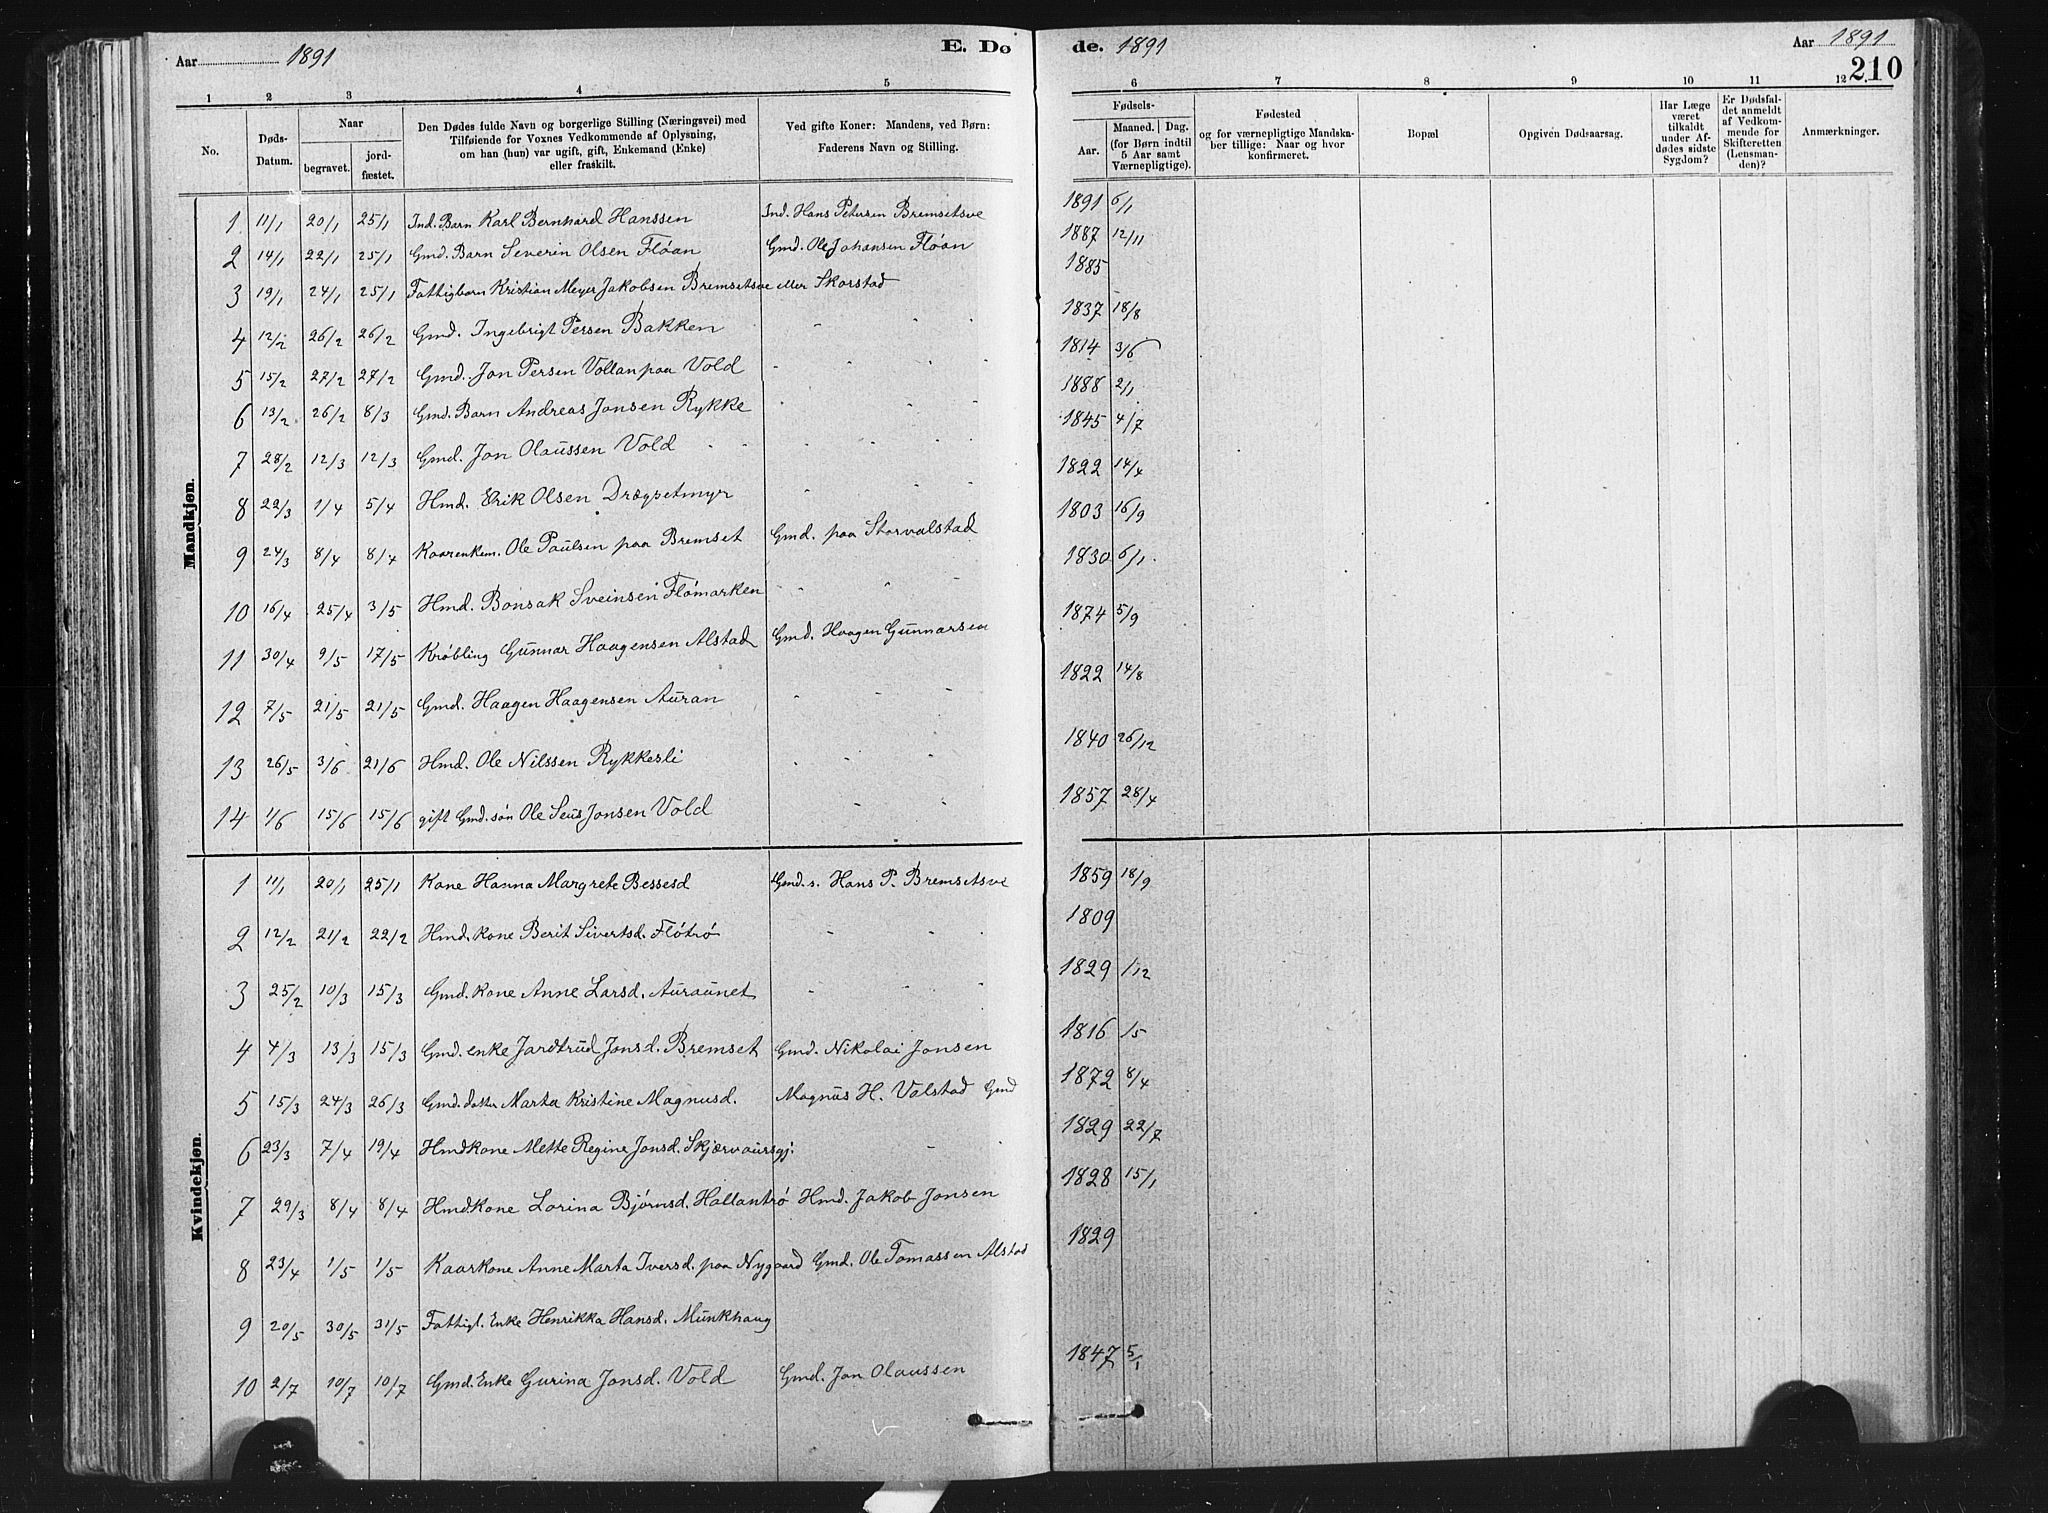 Aar 1891 E. Dø de. 1891 Aar 1891
210
1 2 3 4 5 6 7 8 9 10 11 12
No.
Døds-Datum.
Naar
begravet. jordfæstet.
Den Dødes fulde Navn og borgerlige Stilling (Næringsvei) med
Tilføiende for Voxnes Vedkommende af Oplysning,
om han (hun) var ugift, gift, Enkemand (Enke)
eller fraskilt.
Ved gifte Koner: Mandens, ved Børn:
Faderens Navn og Stilling.
Fødsels-
Aar.
Maaned. Dag.
(for Børn indtil
5 Aar samt
Værnepligtige).
Fødested
og for værnepligtige Mandska-
ber tillige: Naar og hvor
konfirmeret.
Bopæl
Opgiven Dødsaarsag.
Har Læge
været
tilkaldt
under Af-
dødes sidste
Sygdom?
Er Dødsfal-
det anmeldt
af Vedkom-
mende for
Skifteretten
(Lensman-
den)?
Anmærkninger.
Mandkjøn.
1 11/1 20/1 25/1 Ind. Barn Karl Bernhard Hanssen Ind. Hans Petersen Bremsetsve 1891 6/1
2 14/1 22/1 25/1 Gmd. Barn Severin Olsen Flóan Gmd. Ole Johansen Flóan 1887 12/11
3 19/1 24/1 25/1 Fattigbarn Kristian Meyer Jakobsen Bremsetsve eller Skorstad 1885
4 12/2 26/2 26/2 Gmd. Ingebrigt Persen Bakken " " " 1837 18/8
5 15/2 27/2 27/2 Gmd. Jon Persen Vollan paa Vold " " " 1814 3/6
6 13/2 26/2 8/3 Gmd. Barn Andreas Jonsen Rykke " " " 1888 2/1
7 28/2 12/3 12/3 Gmd. Jon Olaussen Vold " " " 1845 4/7
8 22/3 1/4 5/4 Hmd. Erik Olsen Drægsetmyr " " " 1822 14/4
9 24/3 8/4 8/4 Kaarenkem. Ole Paulsen paa Bremset Gmd. paa Storvalstad 1803 16/9
10 16/4 25/4 3/5 Hmd. Bonsak Sveinsen Flómarken " " " 1830 6/1
11 30/4 9/5 17/5 Krøbling Gunnar Haagensen Alstad Gmd. Haagen Gunnarsen 1874 5/9
12 7/5 21/5 21/5 Gmd. Haagen Haagensen Auran " " " 1822 14/8
13 26/5 3/6 21/6 Hmd. Ole Nilssen Rykkesli " " " 1840 26/12
14 1/6 15/6 15/6 gift Gmd. søn Ole Seus Jonsen Vold " " 1857 28/4
Kvindekjøn.
1 11/1 20/1 25/1 Kone Hanna Margrete Bessesd Gmd. s. Hans P. Bremsetsve 1859 18/9
2 12/2 21/2 22/2 Hmd. kone Berit Sivertsd. Flótrø " " " 1809
3 25/2 10/3 15/3 Gmd. kone Anne Larsd. Auraunet " " " 1829 1/12
4 4/3 13/3 15/3 Gmd. enke Jardtrud Jonsd. Bremset Gmd. Nikolai Jonsen 1816 1/5
5 15/3 24/3 26/3 Gmd. datter Marta Kristine Magnusd. Magnus H. Valstad Gmd 1872 8/4
6 23/3 7/4 19/4 Hmdkone Mette Regine Jonsd. Skjærvaursgj. " 1829 22/7
7 29/3 8/4 8/4 Hmdkone Lorina Bjørnsd. Hallantrø Hmd. Jakob Jonsen 1828 15/1
8 23/4 1/5 1/5 Kaarkone Anne Marta Iversd. paa Nygaard Gmd. Ole Tomassen Alstad 1829
9 20/5 30/5 31/5 Fattigl. Enke Henrikka Hansd. Munkhaug
10 2/7 10/7 10/7 Gmd. Enke Gurina Jonsd. Vold Gmd. Jon Olaussen 1847 5/1